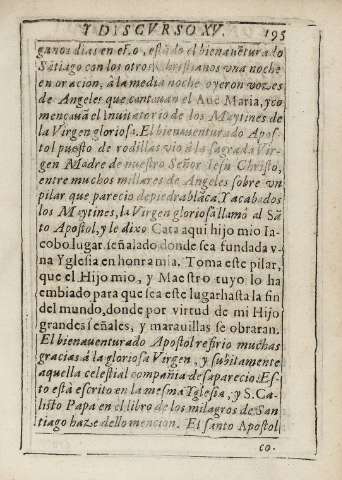 Y DISCVRSO XV. 195
ganos dias en eſ.o, eſtãdo el bienauẽturado
Sãtiago con los otros Chriſtianos vna noche
en oracion, à la media noche oyeron vozes
de Angeles que cantauan el Aue Maria, y co
mençauã el inuitatorio de los Maytines de
la Virgen glorioſa. El bienauenturado Apoſ-
tol pueſto de rodillas vio à la ſagrada Vir-
gen Madre de nueſtro Señor Ieſu Chriſto,
entre muchos millares de Angeles ſobre vn
pilar que parecio de piedra blãca, Y acabados
los Maytines, la Virgen glorioſa llamò al Sã-
to Apoſtol, y le dixo Cata aqui hijo mio Ia-
cobo lugar ſeñalado donde ſea fundada v-
na Ygleſia en honra mia. Toma eſte pilar,
que el Hijo mio, y Maeſtro tuyo lo ha
embiado para que ſea eſte lugar haſta la fin
del mundo, donde por virtud de mi Hijo
grandes ſeñales, y marauillas ſe obraran.
El bienauenturado Apoſtol refirio muchas
gracias à la glorioſa Virgen, y ſubitamente
aquella celeſtial compañia deſaparecio. Eſ-
to eſtà eſcrito en la meſma Ygleſia, y S. Ca-
liſto Papa en el libro de los milagros de San
tiago haze dello mencion. El ſanto Apoſtol
co-